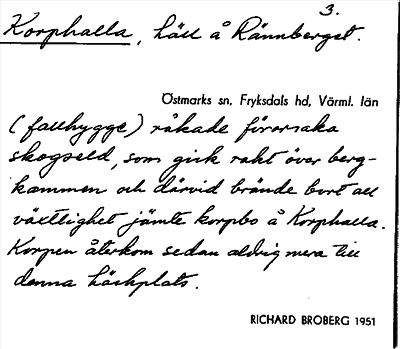 3.
Korphalla, häll å Rännberget.
Östmarks sn, Fryksdals hd, Värml. län
(fallhygge) råkade förorsaka
skogseld, som gick rakt över berg-
kammen och därvid brände bort all
växtlighet jämte korpbo å Korphalla.
Korpen återkom sedan aldrig mera till
denna häckplats.
RICHARD BROBERG 1951